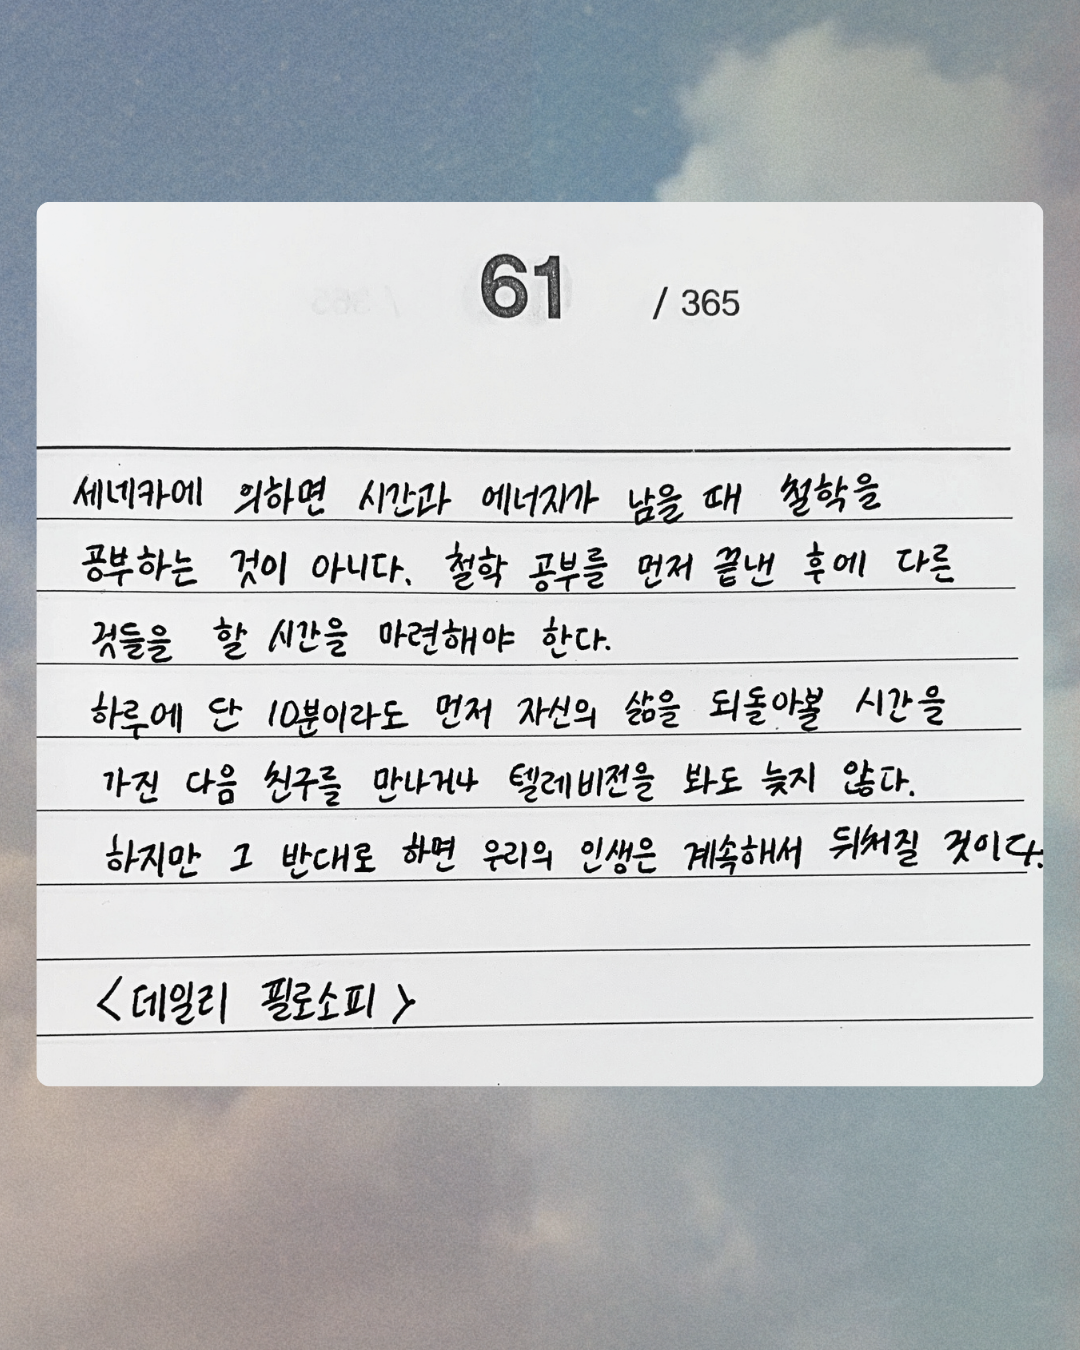 61 / 365
세네카에 의하면 시간과 에너지가 남을 때 철학을
공부하는 것이 아니다. 철학 공부를 먼저 끝낸 후에 다른
것들을 할 시간을 마련해야 한다.
하루에 단 10분이라도 먼저 자신의 삶을 되돌아볼 시간을
가진 다음 친구를 만나거나 텔레비전을 봐도 늦지 않다.
하지만 그 반대로 하면 우리의 인생은 계속해서 뒤처질 것이다.
<데일리 필로소피>